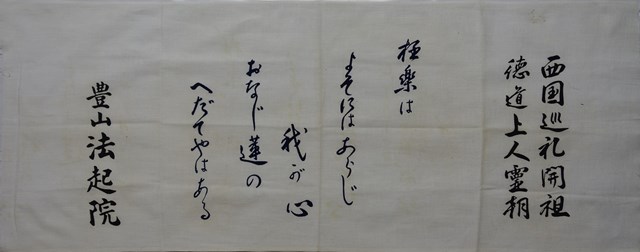 西国巡礼開祖
徳道上人霊廟
極楽は
よそにはあらじ
我が心
おなじ蓮の
へだてやはある
豊山法起院